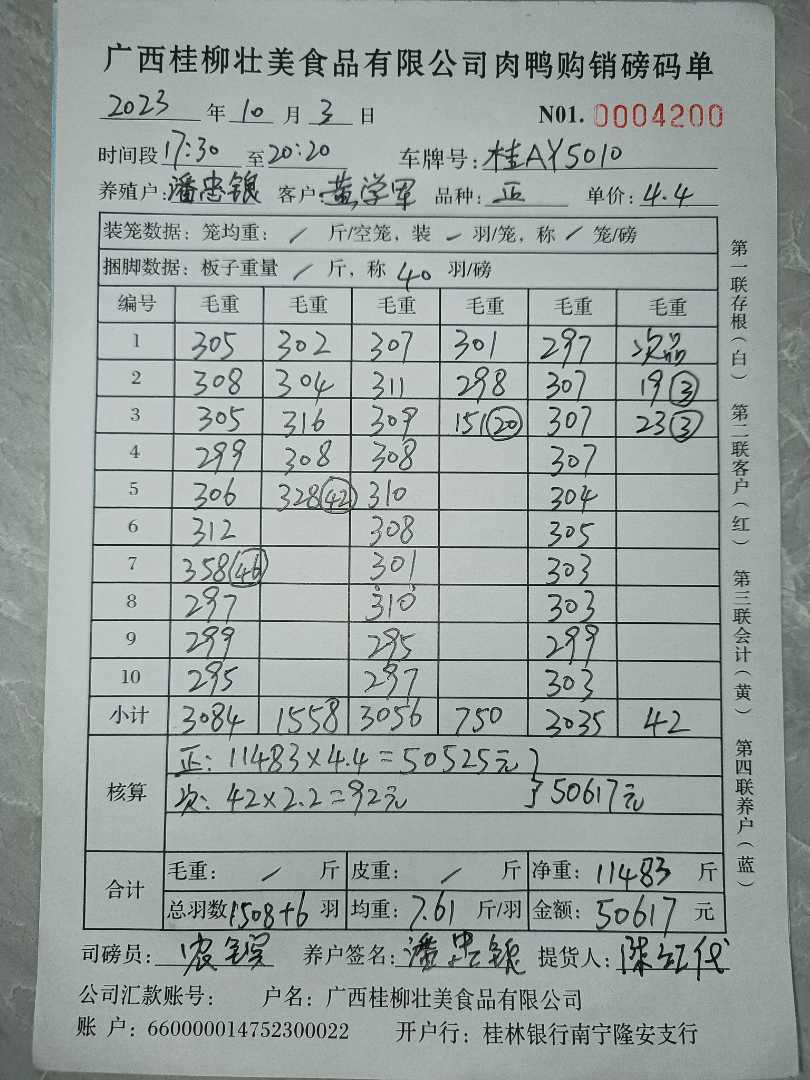 广西桂柳壮美食品有限公司肉鸭购销磅码单
2023 年 10 月 3 日 N01. 0004200
时间段 17:30 至 20:20 车牌号: 桂AY5010
养殖户: 潘忠银 客户: 黄学军 品种: 正 单价: 4.4
装笼数据: 笼均重: / 斤/空笼, 装 / 羽/笼, 称 / 笼/磅
捆脚数据: 板子重量 / 斤, 称 40 羽/磅
编号 毛重 毛重 毛重 毛重 毛重 毛重
1 305 302 307 301 297 次品
2 308 304 311 298 307 19 ③
3 305 316 309 151 ⑳ 307 23 ③
4 299 308 308 307
5 306 328 ㊷ 310 304
6 312 308 305
7 358 ㊻ 301 303
8 297 310 303
9 299 295 299
10 295 297 303
小计 3084 1558 3056 750 3035 42
核算 正: 11483×4.4=50525元 }
次: 42×2.2=92元 } 50617元
合计 毛重: / 斤 皮重: / 斤 净重: 11483 斤
总羽数 1508+6 羽 均重: 7.61 斤/羽 金额: 50617 元
司磅员: 养户签名: 潘忠银 提货人:
公司汇款账号: 户名: 广西桂柳壮美食品有限公司
账 户: 660000014752300022 开户行: 桂林银行南宁隆安支行
第一联存根(白) 第二联客户(红) 第三联会计(黄) 第四联养户(蓝)